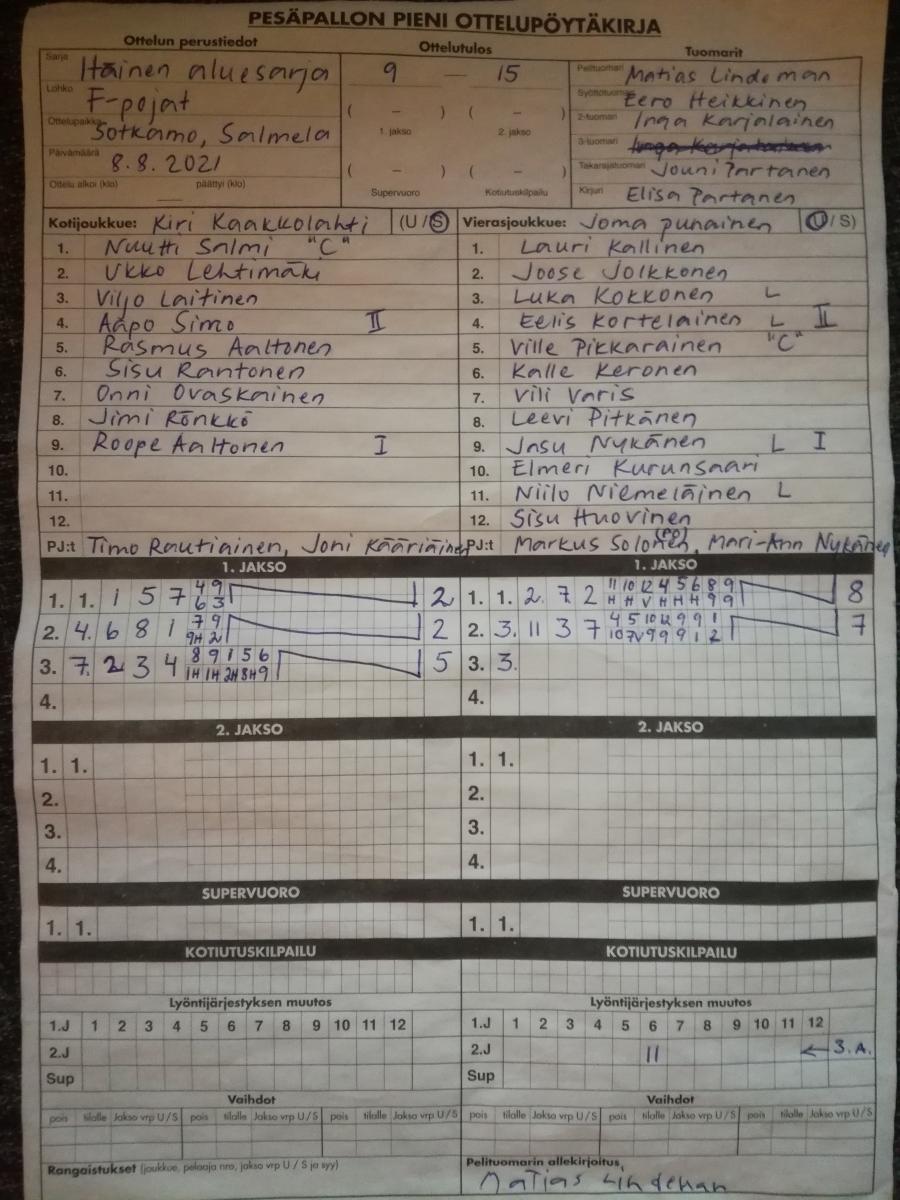 PESÄPALLON PIENI OTTELUPÖYTÄKIRJA
Ottelun perustiedot Ottelutulos Tuomarit
Sarja Itäinen aluesarja 9 — 15 Pelituomari Matias Lindeman
Lohko F-pojat Syöttötuomari Eero Heikkinen
Ottelupaikka Sotkamo, Salmela ( – ) ( – ) 2-tuomari Inga Karjalainen
1. jakso 2. jakso 3-tuomari
Päivämäärä 8.8.2021 ( – ) ( – ) Takarajatuomari Jouni Partanen
Ottelu alkoi (klo) päättyi (klo) Supervuoro Kotiutuskilpailu Kirjuri Elisa Partanen
Kotijoukkue: Kiri Kaakkolahti (U/S) Vierasjoukkue: Joma punainen (U/S)
1. Nuutti Salmi "C" 1. Lauri Kallinen
2. Ukko Lehtimäki 2. Joose Jolkkonen
3. Viljo Laitinen 3. Luka Kokkonen L
4. Aapo Simo II 4. Eelis Kortelainen L II
5. Rasmus Aaltonen 5. Ville Pikkarainen "C"
6. Sisu Rantonen 6. Kalle Keronen
7. Onni Ovaskainen 7. Vili Varis
8. Jimi Rönkkö 8. Leevi Pitkänen
9. Roope Aaltonen I 9. Jasu Nykänen L I
10. 10. Elmeri Kurunsaari
11. 11. Niilo Niemeläinen L
12. 12. Sisu Huovinen
PJ:t Timo Rautiainen, Joni Kääriäinen PJ:t Markus Solonen (PP), Mari-Ann Nykänen
1. JAKSO 1. JAKSO
4 9 11 10 12 4 5 6 8 9
1. 1. 1 5 7 6 3 2 1. 1. 2. 7. 2 H H V H H H 9 9 8
7 9 4 5 10 12 9 9 1
2. 4. 6 8 1 9H 2 2 2. 3. 11 3 7 10 7V 9 9 9 1 2 7
8 9 1 5 6
3. 7. 2 3 4 1H 1H 2H 8H 9 5 3. 3.
4. 4.
2. JAKSO 2. JAKSO
1. 1. 1. 1.
2. 2.
3. 3.
4. 4.
SUPERVUORO SUPERVUORO
1. 1. 1. 1.
KOTIUTUSKILPAILU KOTIUTUSKILPAILU
Lyöntijärjestyksen muutos Lyöntijärjestyksen muutos
1.J 1 2 3 4 5 6 7 8 9 10 11 12 1.J 1 2 3 4 5 6 7 8 9 10 11 12
2.J 2.J 11 ← 3.A.
Sup Sup
Vaihdot Vaihdot
pois tilalle Jakso vrp U/S pois tilalle Jakso vrp U/S pois tilalle Jakso vrp U/S pois tilalle Jakso vrp U/S pois tilalle Jakso vrp U/S pois tilalle Jakso vrp U/S
Rangaistukset (joukkue, pelaaja nro, jakso vrp U / S ja syy) Pelituomarin allekirjoitus
Matias Lindeman